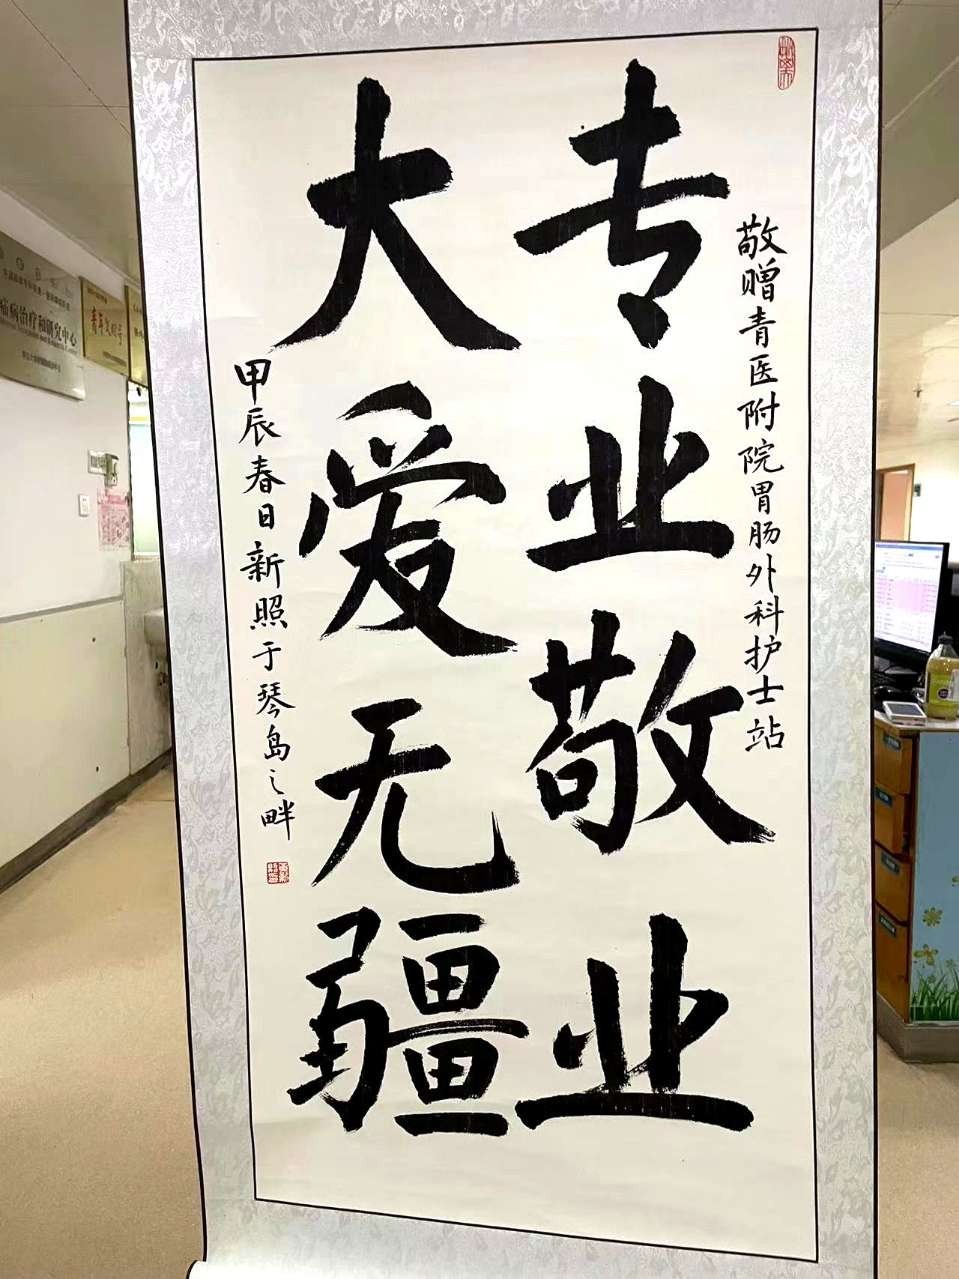 敬赠青医附院胃肠外科护士站
专业敬业
大爱无疆
甲辰春日新照于琴岛之畔
青年文明号